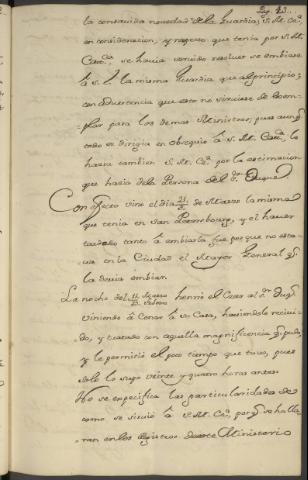 la continuida novedad de la Guardia, S. M. Ca.
en consideracion, y respeto que tenia por S. M.
Cat.ca se havia servido resolver se embiase
à S. E. la misma Guardia que al principio;
con advertencia que esto no sirviese de Exem-
plar para los demas Ministros, pues aunq.
todo se dirigia en obsequio à S. M. Cat.ca lo
hacia tambien S. M. Ca. por la estimacion
que hacia de la Persona del S.r Duque
Con efecto vino el dia de Marzo la misma
que tenia en San Petersbourg, y el haver
tardado tanto à embiarla fue por que no esta-
va en la Ciudad el Mayor General q.
la devia embiar.
La noche del honró el Czar al S.r Duq.
viniendo à Cenar la su Casa, haviendole recivi-
do, y tratado con aquella magnificencia q. pudo,
y le permitió el poco tiempo que tuvo, pues
solo lo supo veinte y quatro horas antes
No se especifica las particularidades de
como se sirvió à S. M. Ca. porq. se halla-
ran en los registros de este Ministerio